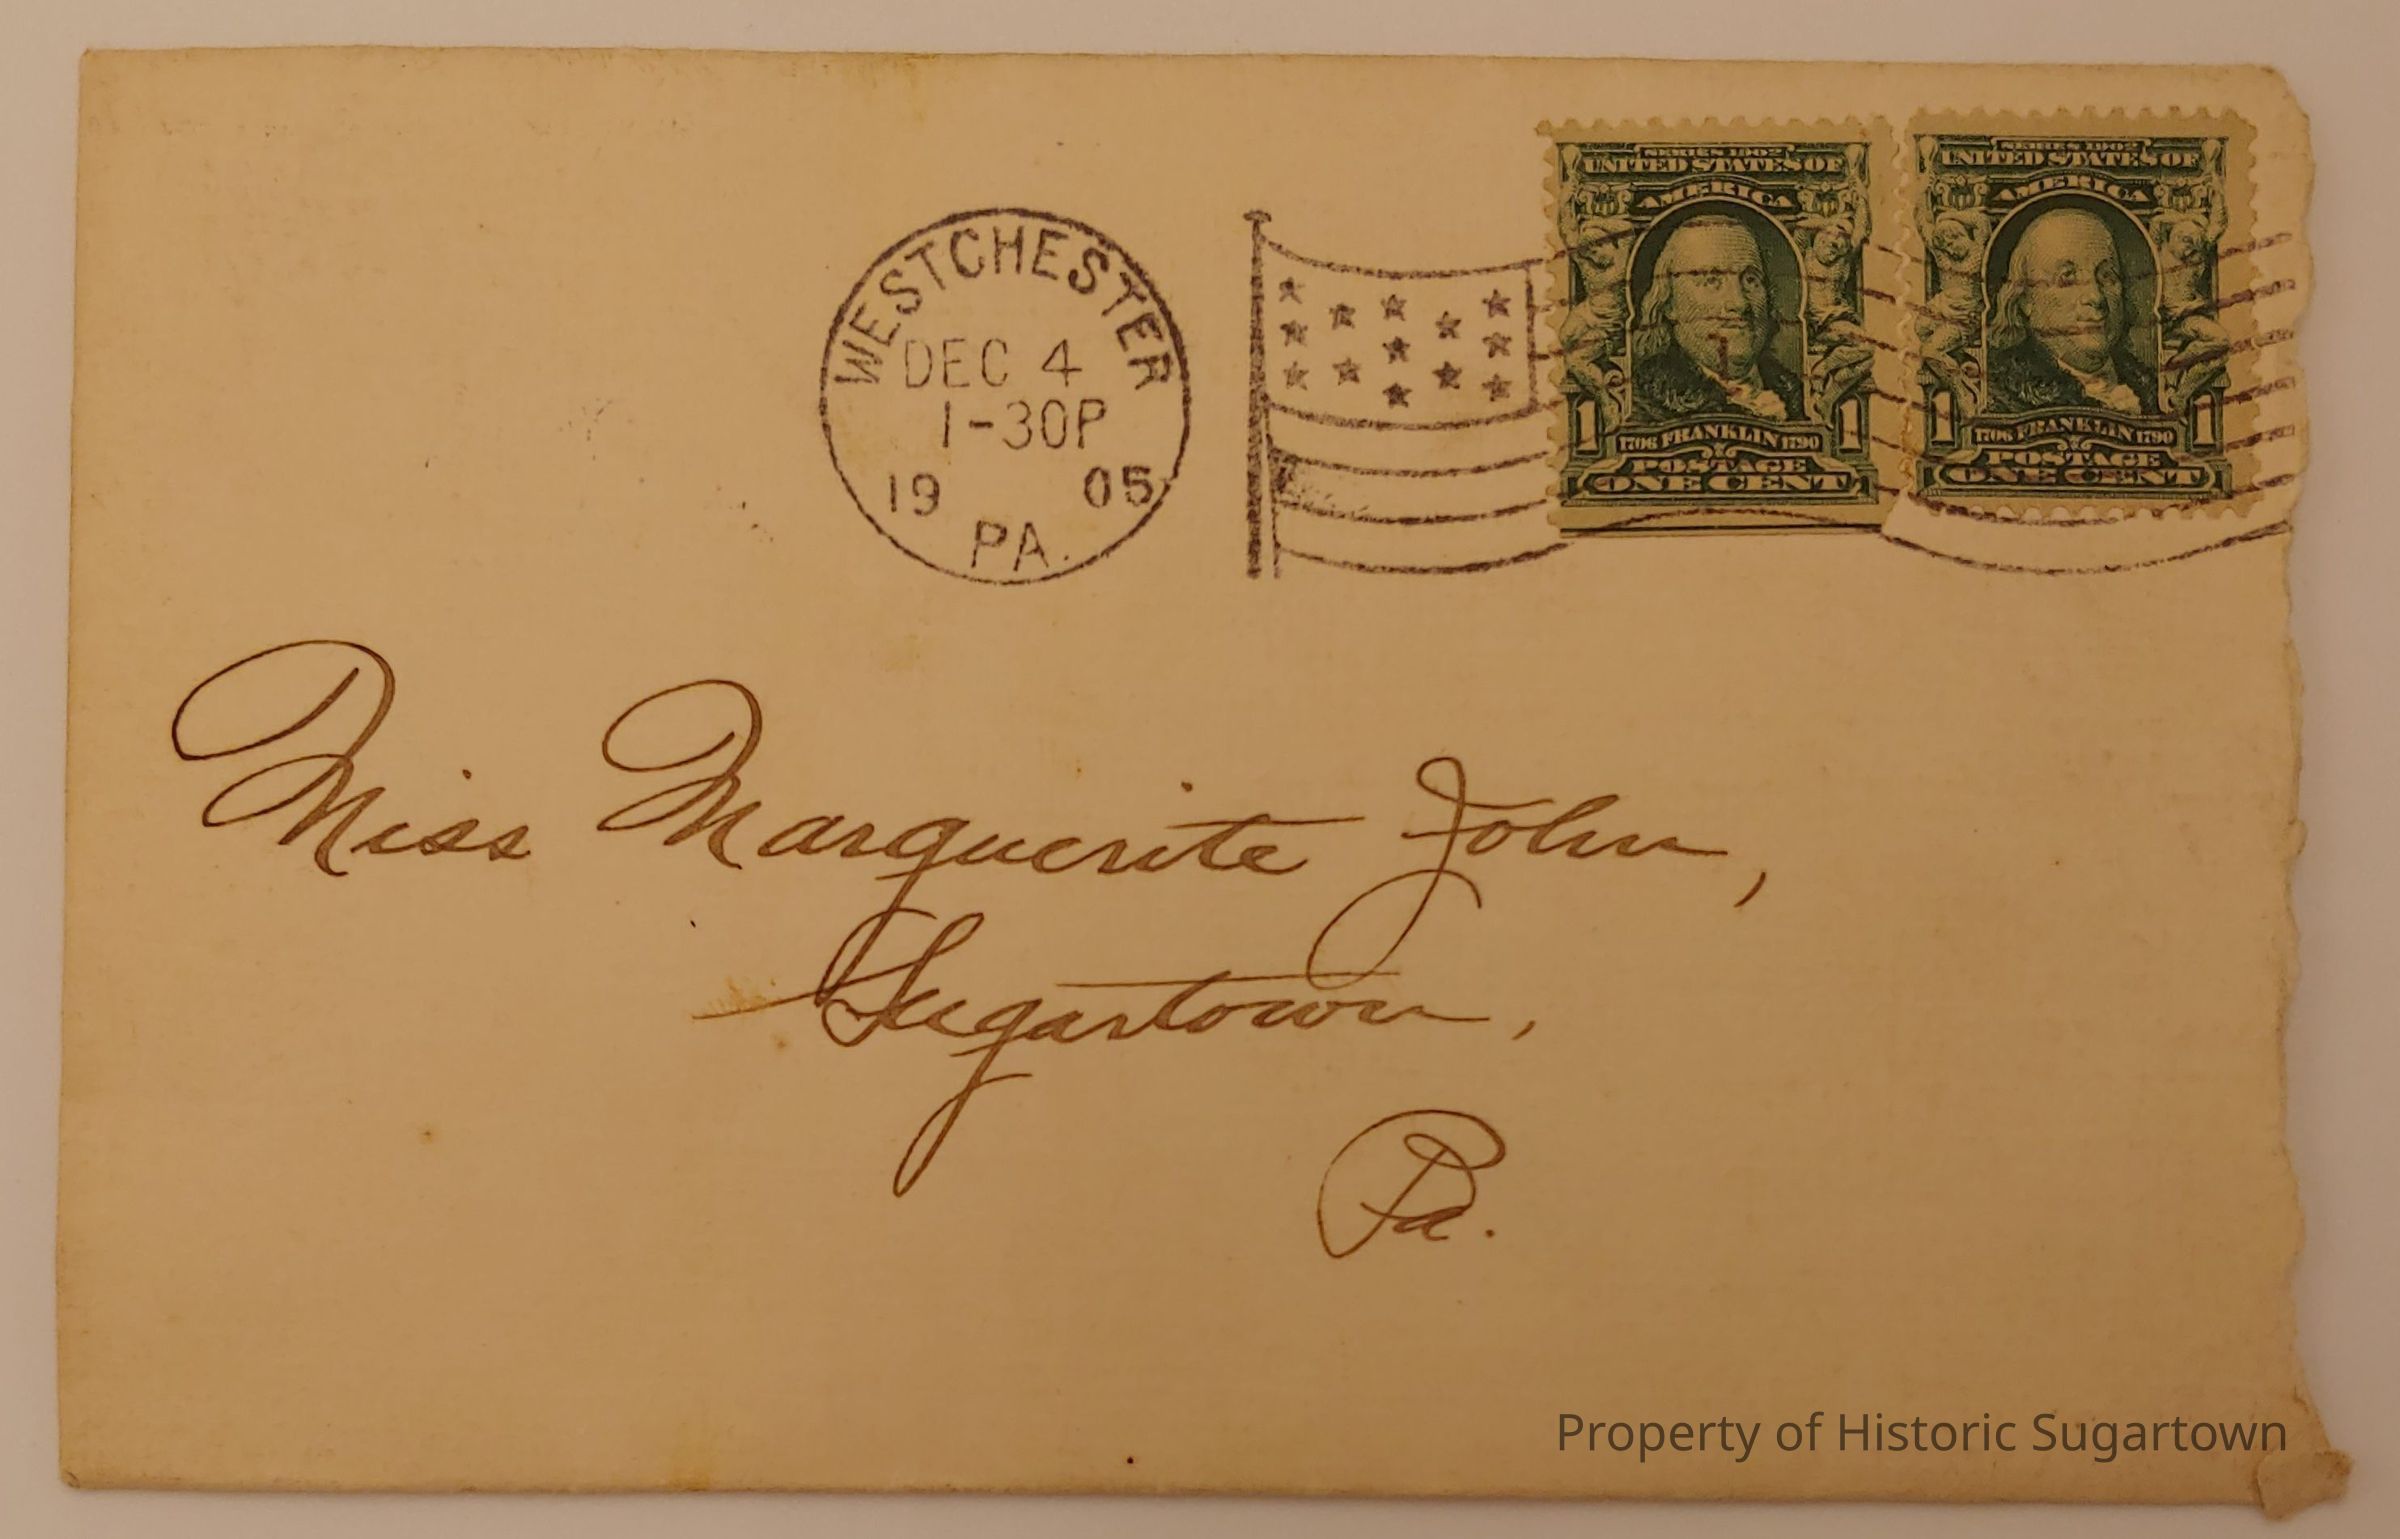 WESTCHESTER
DEC 4
1-30P
19 05
PA.
SERIES 1902
UNITED STATES OF
AMERICA
1 1
1706 FRANKLIN 1790
POSTAGE
ONE CENT
SERIES 1902
UNITED STATES OF
AMERICA
1 1
1706 FRANKLIN 1790
POSTAGE
ONE CENT
Miss Marguerite John,
Sugartown,
Pa.
Property of Historic Sugartown